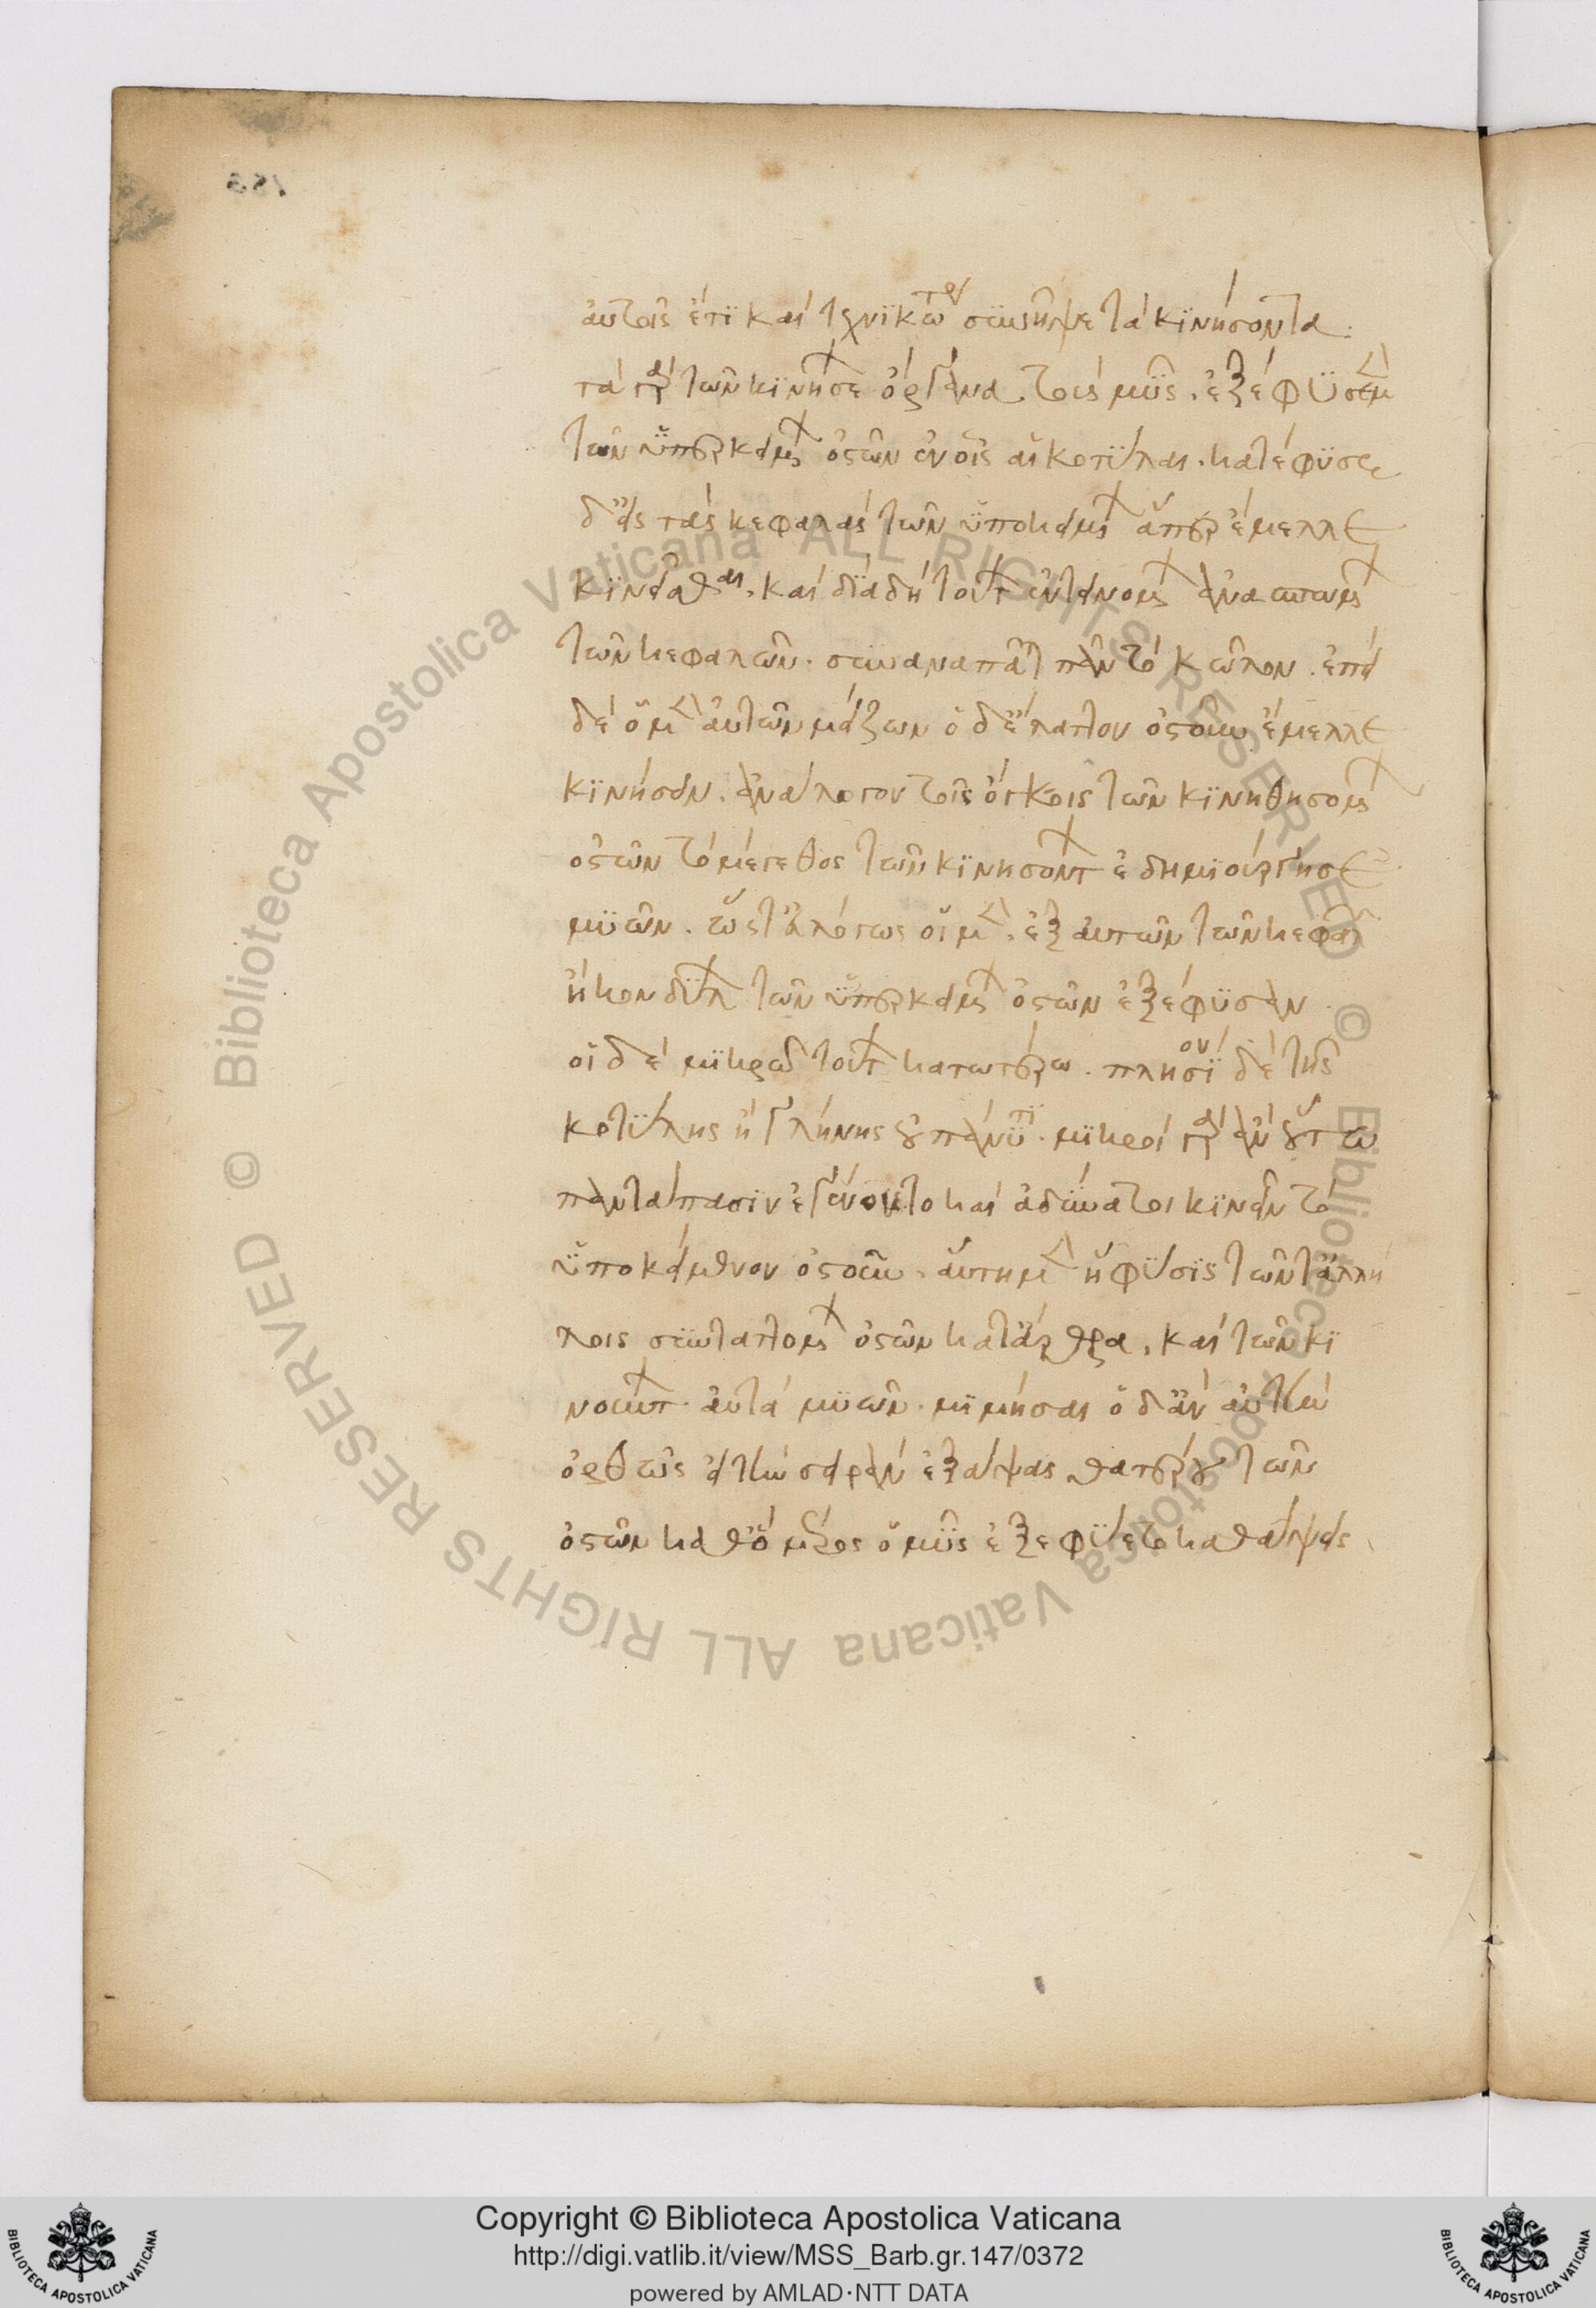 αὐτοῖς ἔτϊ καὶ τεχνϊκώτερ συνῆψε τὰ κϊνήσοντα.
τὰ γὰρ τῶν κϊνήσε ὄργανα τοὺς μῦς. ἐξέφϋσε μὲν
τῶν ὑπερκειμένων ὀστῶν ἐν οἷς αἱ κοτύλαι. κατέφϋσε
δ' εἰς τὰς κεφαλὰς τῶν ὑποκειμένων ἅπερ ἔμελλε
κϊνεῖσθαι. καὶ δϊὰ δὴ τοῦτ ἐντεινομένων ἀνασπωμένων
τῶν κεφαλῶν. συνανασπᾶται πᾶν τὸ κῶλον. ἐπεὶ
δὲ ὁ μὲν αὐτῶν μεῖζων ὁ δ' ἔλαττον ὀστοῦν ἔμελλε
κϊνήσειν. ἀνάλογον τοῖς ὄγκοις τῶν κϊνηθησομένων
ὀστῶν τὸ μέγεθος τῶν κϊνησόντ ἐδημϊούργησε
μϋῶν. ὥστ' εὐλόγως οἱ μὲν. ἐξ αὐτῶν τῶν κεφαλ
ἧκον δϊόλ τῶν ὑπερκειμένων ὀστῶν ἐξέφϋσαν.
οἱ δὲ μϊκρῶ τούτ κατωτέρω. πλησϊον δὲ τῆς
κοτύλης ἢ γλήνης οὐ πάνϋ τϊ. μϊκροὶ γὰρ ἂν οὕτω
παντάπασιν ἐγένοντο καὶ ἀδύνατοι κϊνεῖν τὸ
ὑποκείμενον ὀστοῦν. αὕτη μὲν ἡ φύσϊς τῶν τ' ἀλλή
λοις συνταττομένων ὀστῶν κατ' ἄρθρα. καὶ τῶν κϊ
νούντ αὐτὰ μϋῶν. μϊμήσαι ὁ δ' ἂν αὐτὴν
ὀρθῶς εἰ τὴν σειρὰν ἐξάψας θατέρου τῶν
ὀστῶν καθ' ὃ μέρος ὁ μῦς ἐξεφύετο καθάψεις
Copyright © Biblioteca Apostolica Vaticana
http://digi.vatlib.it/view/MSS_Barb.gr.147/0372
powered by AMLAD·NTT DATA
© Biblioteca Apostolica Vaticana ALL RIGHTS RESERVED © Biblioteca Apostolica Vaticana ALL RIGHTS RESERVED
BIBLIOTECA APOSTOLICA VATICANA
BIBLIOTECA APOSTOLICA VATICANA